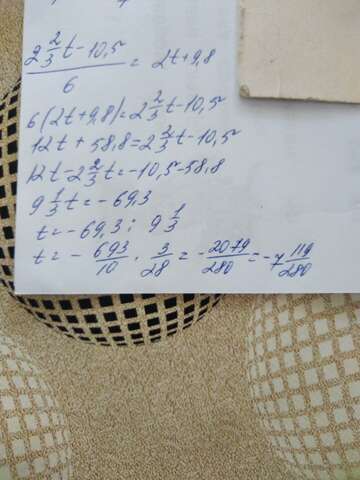 (2 2/3 t - 10,5)/6 = 2t + 9,8
6(2t+9,8)=2 2/3 t - 10,5
12t + 58,8 = 2 2/3 t - 10,5
12t - 2 2/3 t = -10,5 - 58,8
9 1/3 t = -69,3
t = -69,3 : 9 1/3
t = - 693/10 · 3/28 = - 2079/280 = -7 119/280